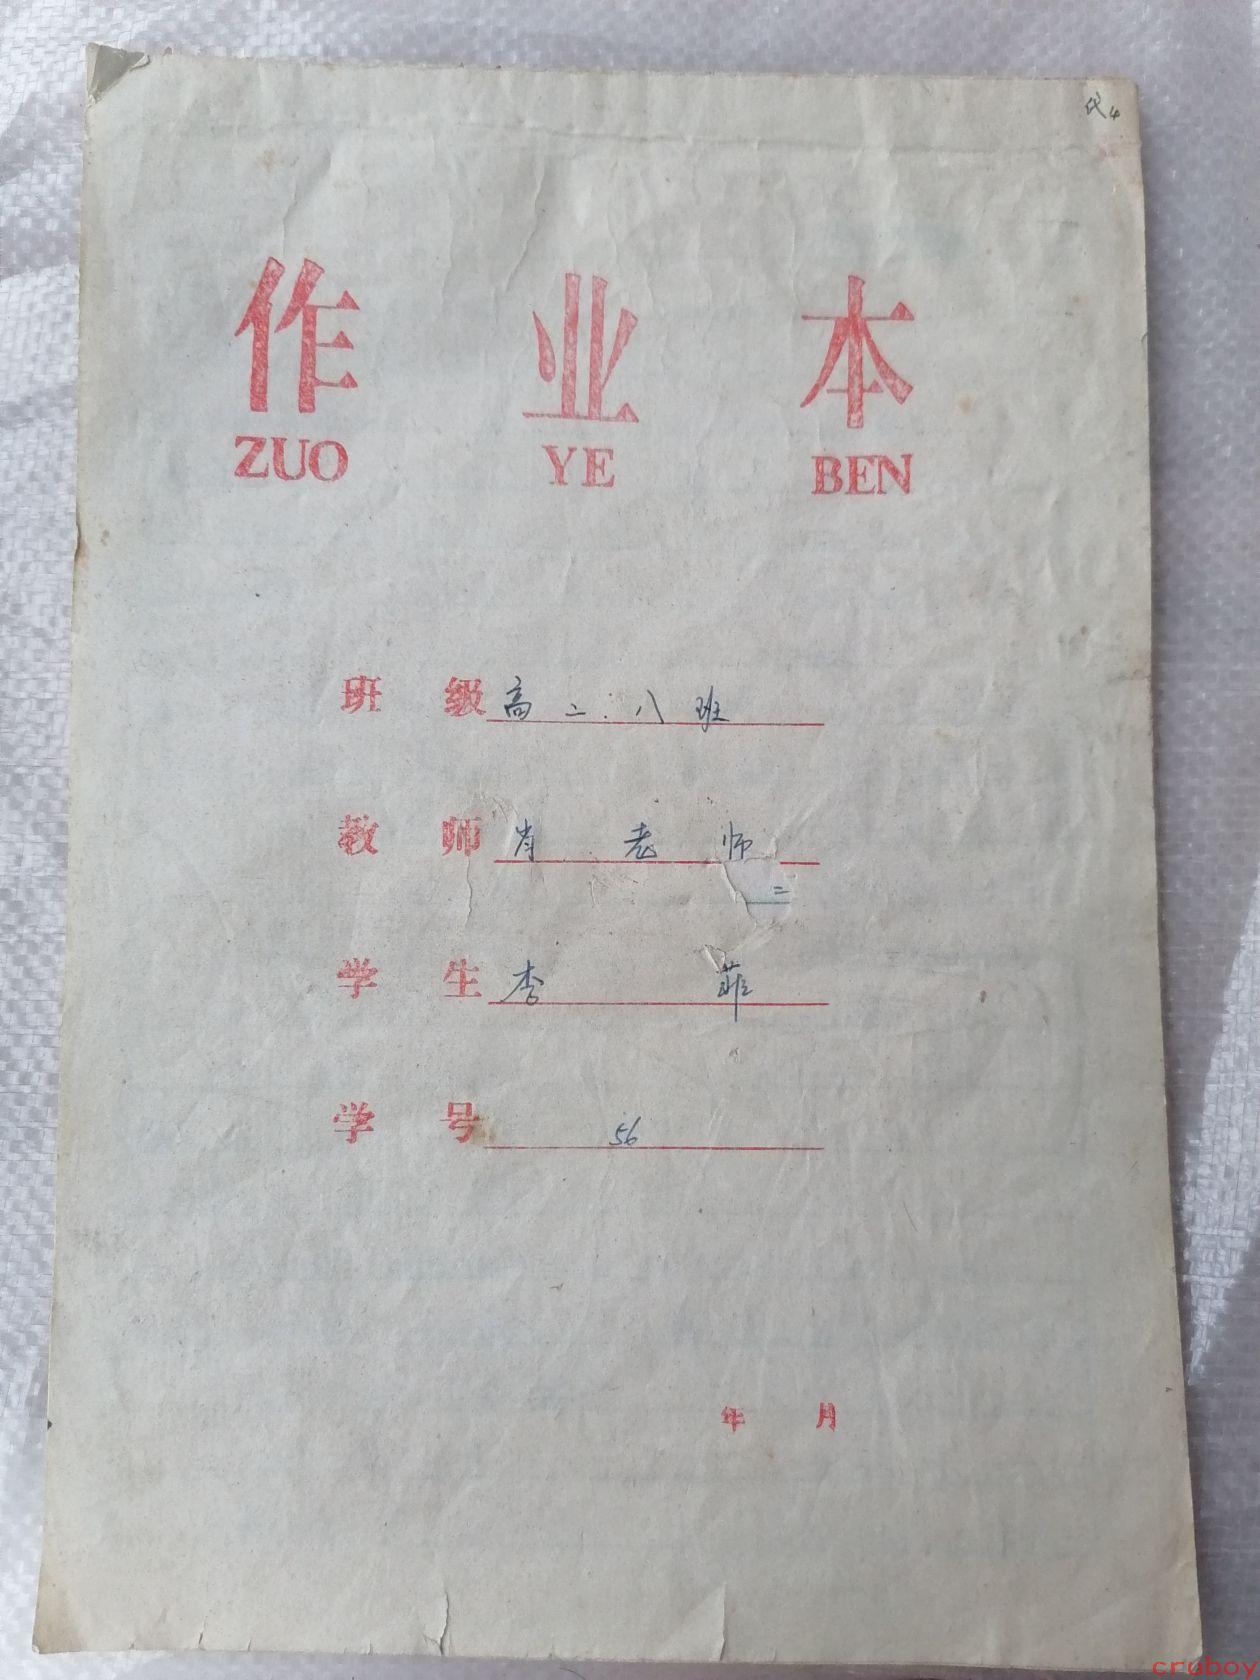 代4
作 业 本
ZUO YE BEN
班 级 高 二.八 班
教 师 肖 老 师
二
学 生 李 菲
学 号 56
年 月
cruboy